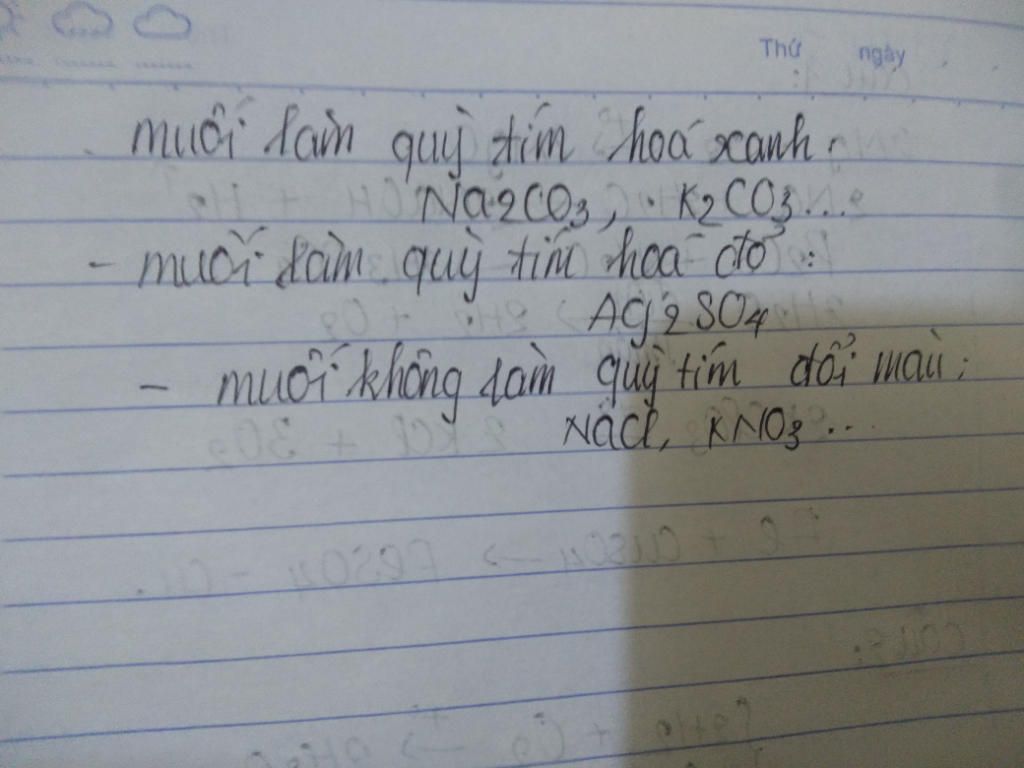 Thứ ngày
muối làm quỳ tím hoá xanh:
Na2CO3, K2CO3...
- muối làm quỳ tím hoá đỏ:
Ag2SO4
- muối không làm quỳ tím đổi màu:
NaCl, KNO3...